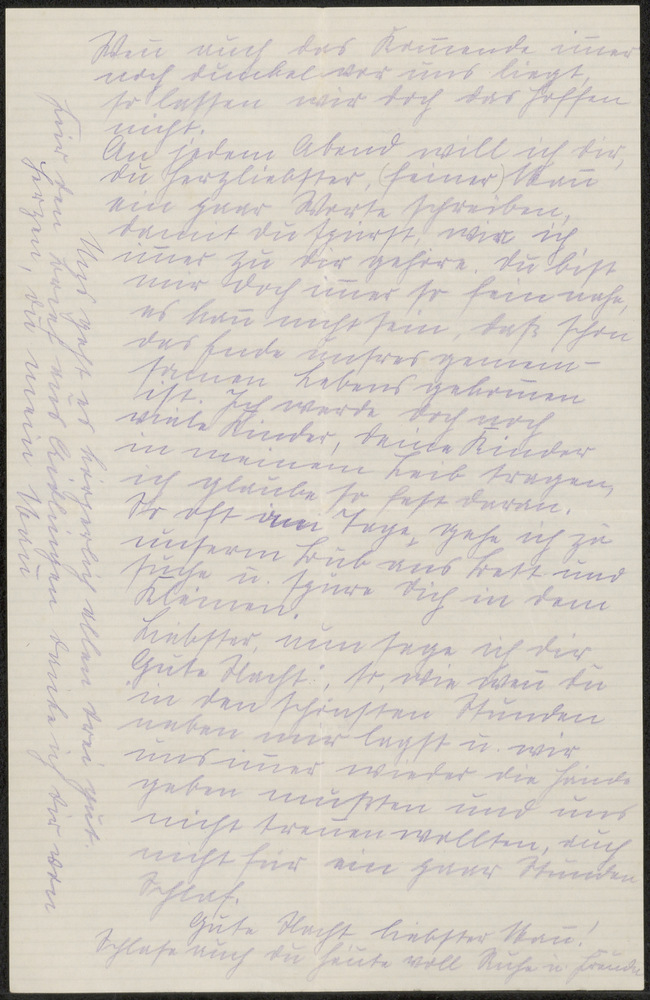 Wenn auch das Kommende immer
noch dunkel vor uns liegt,
so lassen wir doch das Hoffen
nicht.
An jedem Abend will ich dir,
du herzliebster, (feiner) Mann
ein paar Worte schreiben,
damit du spürst, wie ich
immer zu dir gehöre. Du bist
mir doch immer so fein nahe,
es kann nicht sein, daß schon
das Ende unsres gemein-
samen Lebens gekommen
ist. Ich werde doch noch
viele Kinder, deine Kinder
in meinem Leib tragen,
ich glaube so fest daran.
So oft am Tage, gehe ich zu
unserm Bub ans Bett und
suche u. spüre dich in dem
Kleinen.
Liebster, nun sage ich dir
"Gute Nacht", so, wie wenn du
in den schönsten Stunden
neben mir lagst u. wir
uns immer wieder die Hände
geben mußten und uns
nicht trennen wollten, auch
nicht für ein paar Stunden
Schlaf.
Gute Nacht liebster Mann!
Schlafe auch du heute voll Ruhe u. Freude
Uns geht es körperlich allen drei gut.
Für den Brief aus danke ich dir von
Herzen, du mein Mann